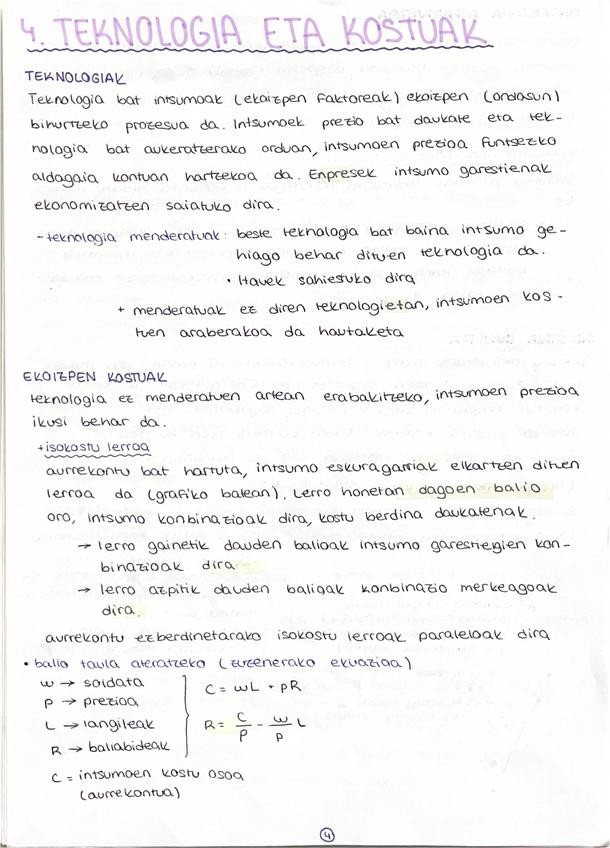 4. TEKNOLOGIA ETA KOSTUAK
TEKNOLOGIAK
Teknologia bat intsumoak (ekoizpen faktoreak) ekoizpen (ondasun)
bihurtzeko prozesua da. Intsumoek prezio bat daukate eta tek-
nologia bat aukeratzerako orduan, intsumoen prezioa funtsezko
aldagaia kontuan hartzekoa da. Enpresek intsumo garestienak
ekonomizatzen saiatuko dira.
- teknologia menderatuak: beste teknologia bat baina intsumo ge-
hiago behar dituen teknologia da.
• Hauek sahiestuko dira
+ menderatuak ez diren teknologietan, intsumoen kos-
tuen araberakoa da hautaketa
EKOIZPEN KOSTUAK
teknologia ez menderatuen artean erabakitzeko, intsumoen prezioa
ikusi behar da.
+ isokostu lerroa
aurrekontu bat hartuta, intsumo eskuragarriak elkartzen dituen
lerroa da (grafiko batean). Lerro honetan dagoen balio
oro, intsumo konbinazioak dira, kostu berdina daukatenak.
→ lerro gainetik dauden balioak intsumo garestiegien kon-
binazioak dira.
→ lerro azpitik dauden balioak konbinazio merkeagoak
dira.
aurrekontu ezberdinetarako isokostu lerroak paraleloak dira
• balio taula ateratzeko (zuzenerako ekuazioa)
w → soldata
P → prezioa
L → langileak
R → baliabideak
C = wL + pR
R = C/P - w/P L
C = intsumoen kostu osoa
(aurrekontua)
4